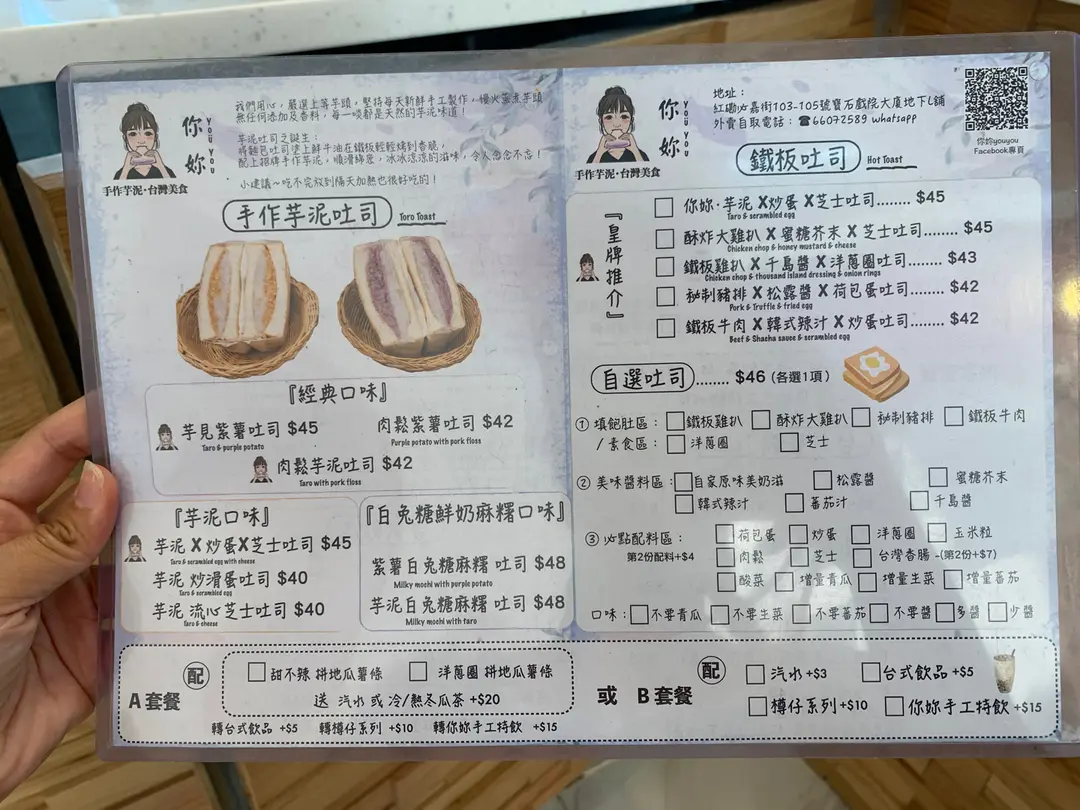 我們用心，嚴選上等芋頭，堅持每天新鮮手工製作，慢火蒸煮芋頭
無任何添加及香料，每一啖都是天然的芋泥味道！
芋泥吐司之誕生：
將麵包吐司塗上鮮牛油在鐵板輕輕烤到香脆，
配上招牌手作芋泥，順滑綿密，冰冰涼涼的滋味，令人念念不忘！
小建議～吃不完放到隔天加熱也很好吃的！
你妳
YOU YOU
手作芋泥·台灣美食
手作芋泥吐司
Toro Toast
『經典口味』
芋見紫薯吐司 $45
Taro & purple potato
肉鬆紫薯吐司 $42
Purple potato with pork floss
肉鬆芋泥吐司 $42
Taro with pork floss
『芋泥口味』
芋泥 X 炒蛋X芝士吐司 $45
Taro & scrambled egg with cheese
芋泥 炒滑蛋吐司 $40
Taro & scrambled egg
芋泥 流心芝士吐司 $40
Taro & cheese
『白兔糖鮮奶麻糬口味』
紫薯白兔糖麻糬 吐司 $48
Milky mochi with purple potato
芋泥白兔糖麻糬 吐司 $48
Milky mochi with taro
你妳
YOU YOU
手作芋泥·台灣美食
地址：
紅磡必嘉街103-105號寶石戲院大廈地下L舖
外賣自取電話：☎66072589 whatsapp
你妳youyou
Facebook專頁
鐵板吐司
Hot Toast
『皇牌推介』
你妳·芋泥 X炒蛋 X芝士吐司........ $45
Taro & scrambled egg
酥炸大雞扒 X 蜜糖芥末 X 芝士吐司........ $45
Chicken chop & honey mustard & cheese
鐵板雞扒 X 千島醬 X 洋蔥圈吐司........ $43
Chicken chop & thousand island dressing & onion rings
秘制豬排 X 松露醬 X 荷包蛋吐司........ $42
Pork & Truffle & fried egg
鐵板牛肉 X 韓式辣汁 X 炒蛋吐司........ $42
Beef & Shacha sauce & scrambled egg
自選吐司........ $46 (各選1項)
① 填飽肚區： 鐵板雞扒 酥炸大雞扒 秘制豬排 鐵板牛肉
/ 素食區： 洋蔥圈 芝士
② 美味醬料區： 自家原味美奶滋 松露醬 蜜糖芥末
韓式辣汁 蕃茄汁 千島醬
③ 必點配料區： 荷包蛋 炒蛋 洋蔥圈 玉米粒
第2份配料+$4 肉鬆 芝士 台灣香腸 -(第2份+$7)
酸菜 增量青瓜 增量生菜 增量蕃茄
口味： 不要青瓜 不要生菜 不要蕃茄 不要醬 多醬 少醬
A 套餐 配 甜不辣 拼地瓜薯條 洋蔥圈 拼地瓜薯條
送 汽水 或 冷/熱冬瓜茶 +$20
轉台式飲品 +$5 轉樽仔系列 +$10 轉你妳手工特飲 +$15
或 B 套餐 配 汽水 +$3 台式飲品 +$5
樽仔系列 +$10 你妳手工特飲 +$15